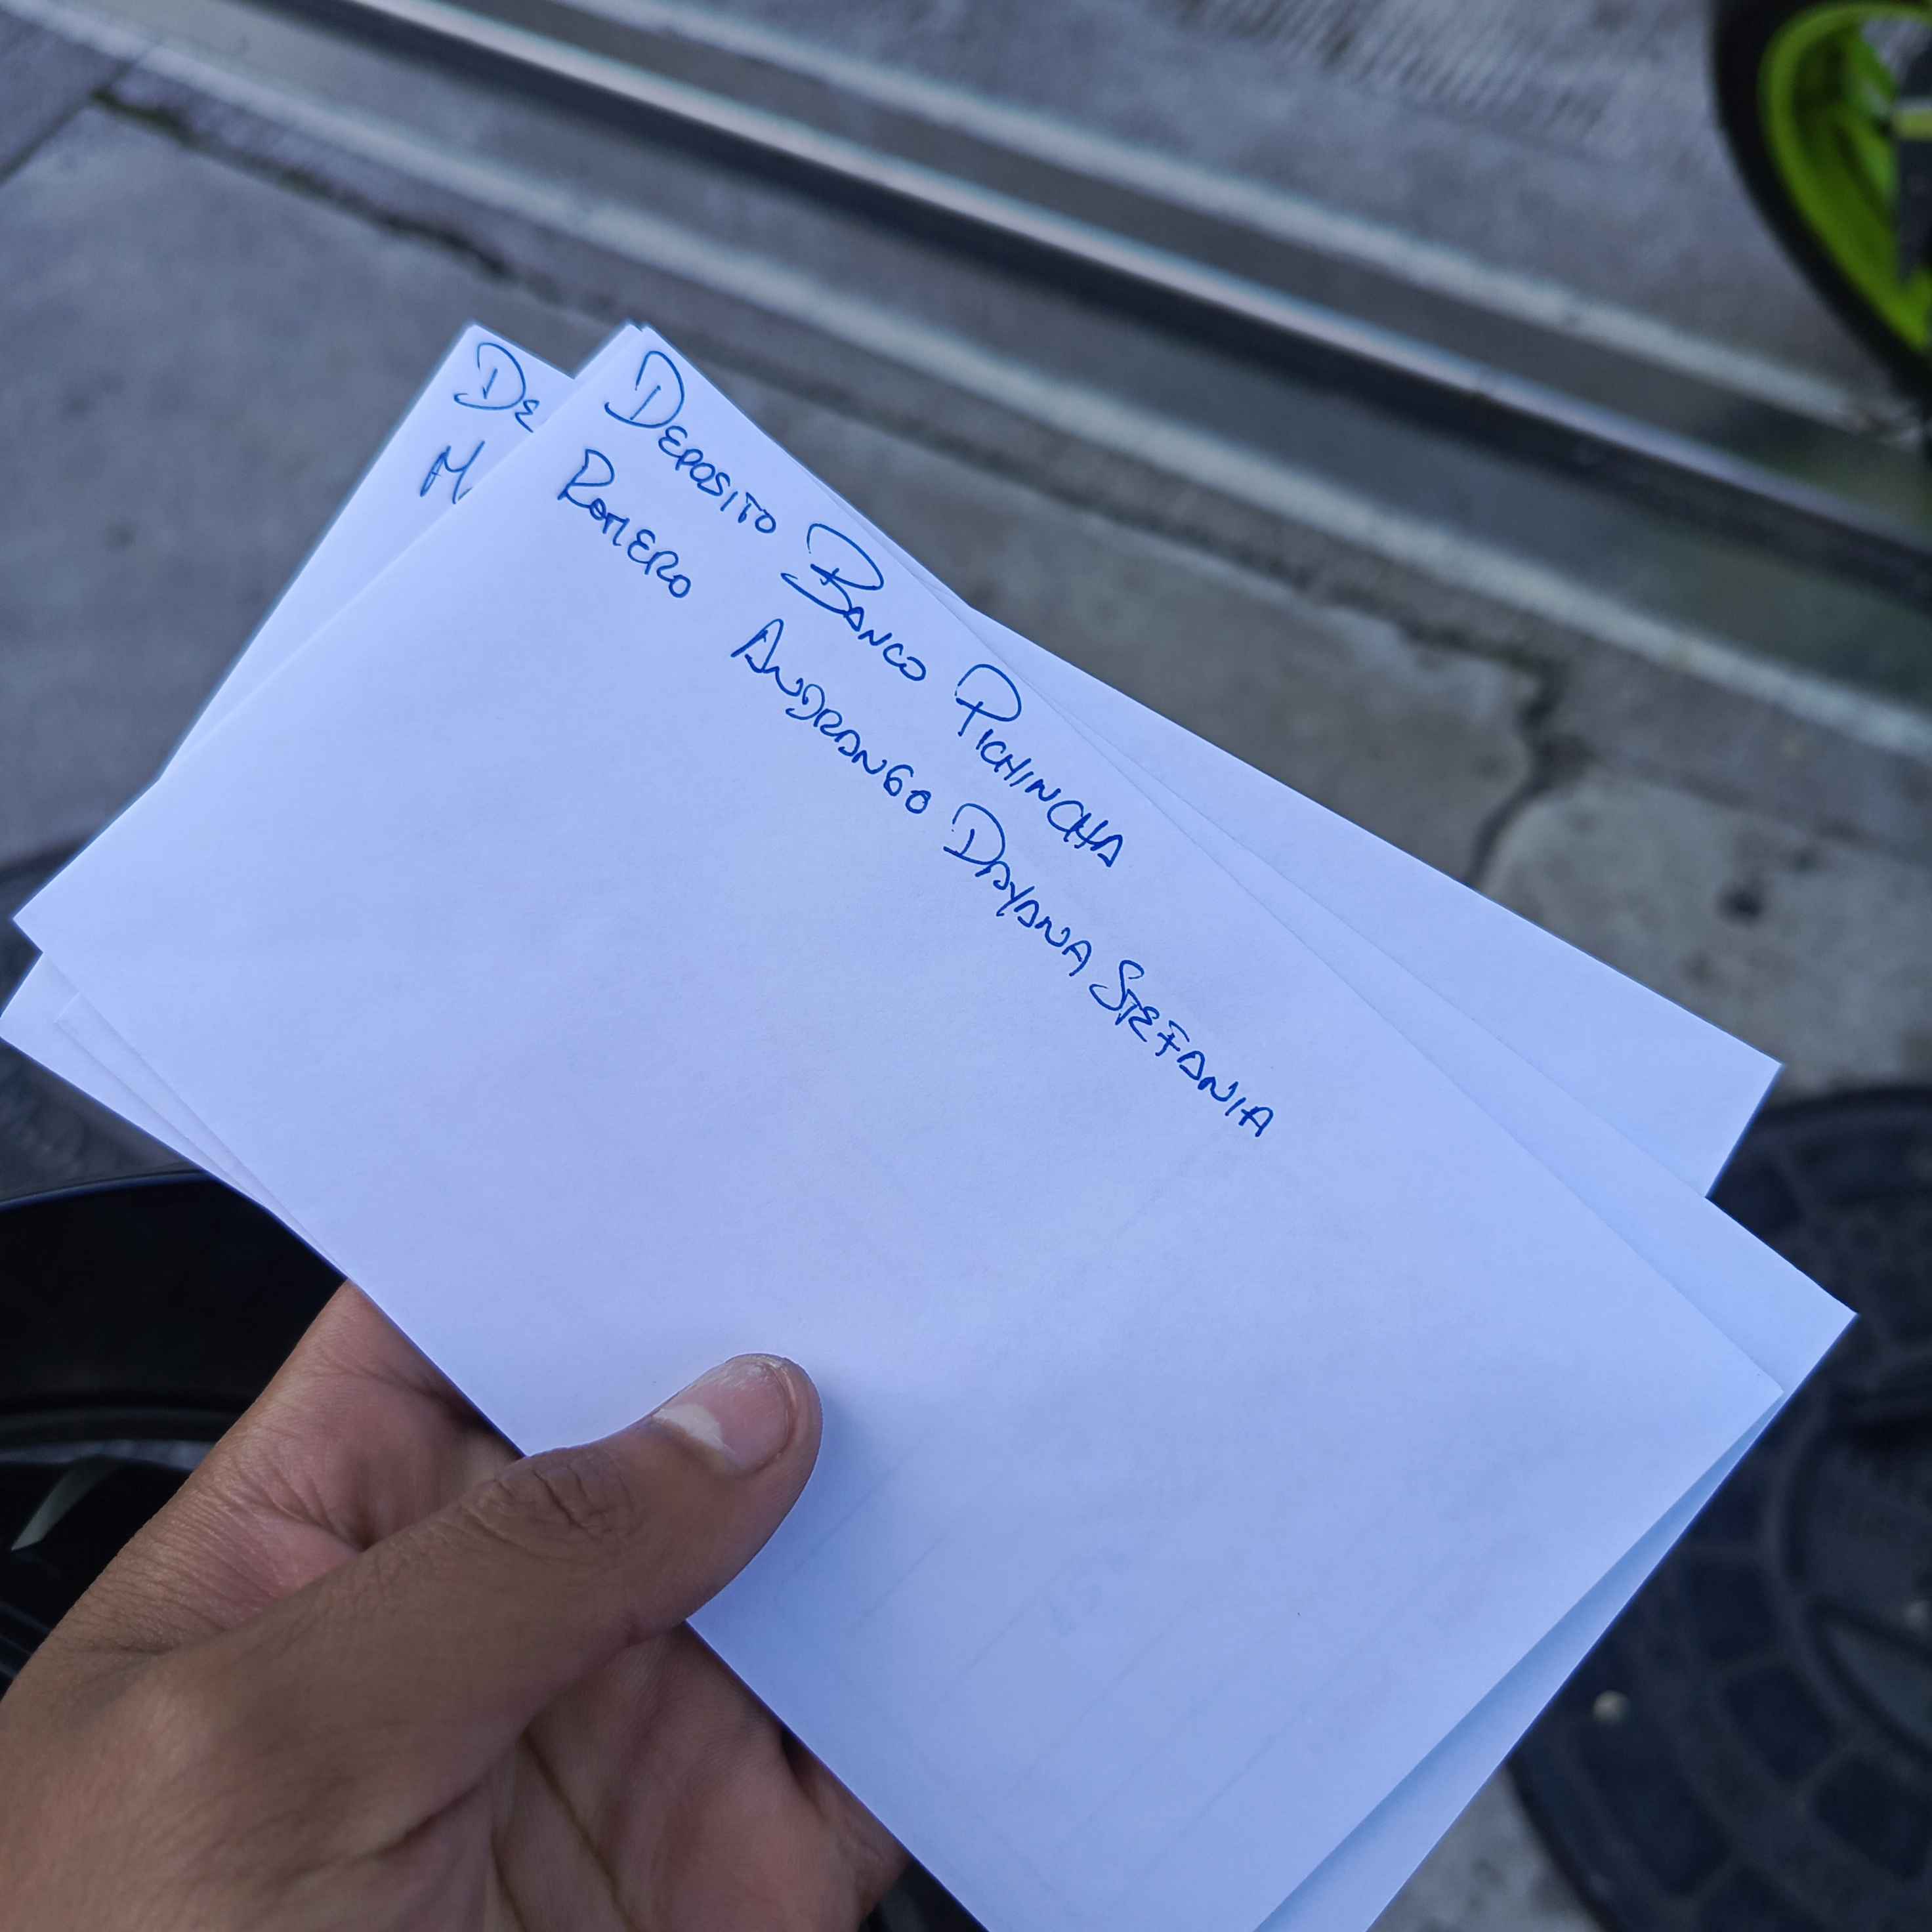 DE
M
DEPOSITO BANCO PICHINCHA
ROMERO ANDRANGO DAYANA STEFANIA